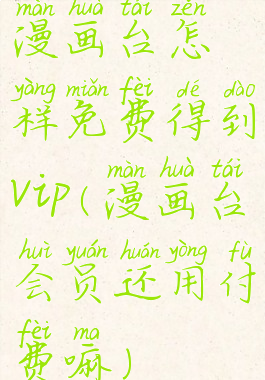 màn huà tái zěn
漫画台怎
yàng miǎn fèi dé dào
样免费得到
màn huà tái
vip(漫画台
huì yuán huán yòng fù
会员还用付
fèi ma
费嘛)